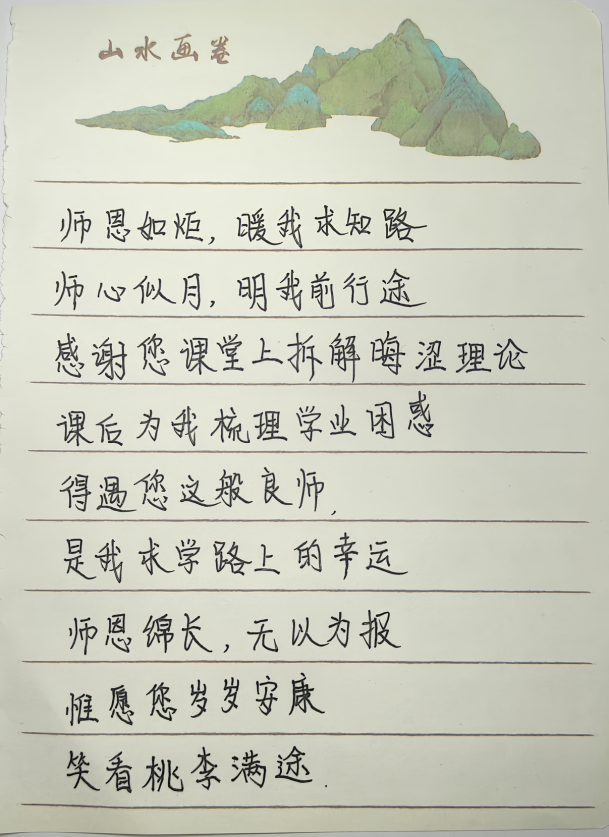 山水画卷
师恩如炬，暖我求知路
师心似月，明我前行途
感谢您课堂上拆解晦涩理论
课后为我梳理学业困惑
得遇您这般良师，
是我求学路上的幸运
师恩绵长，无以为报
惟愿您岁岁安康
笑看桃李满途.